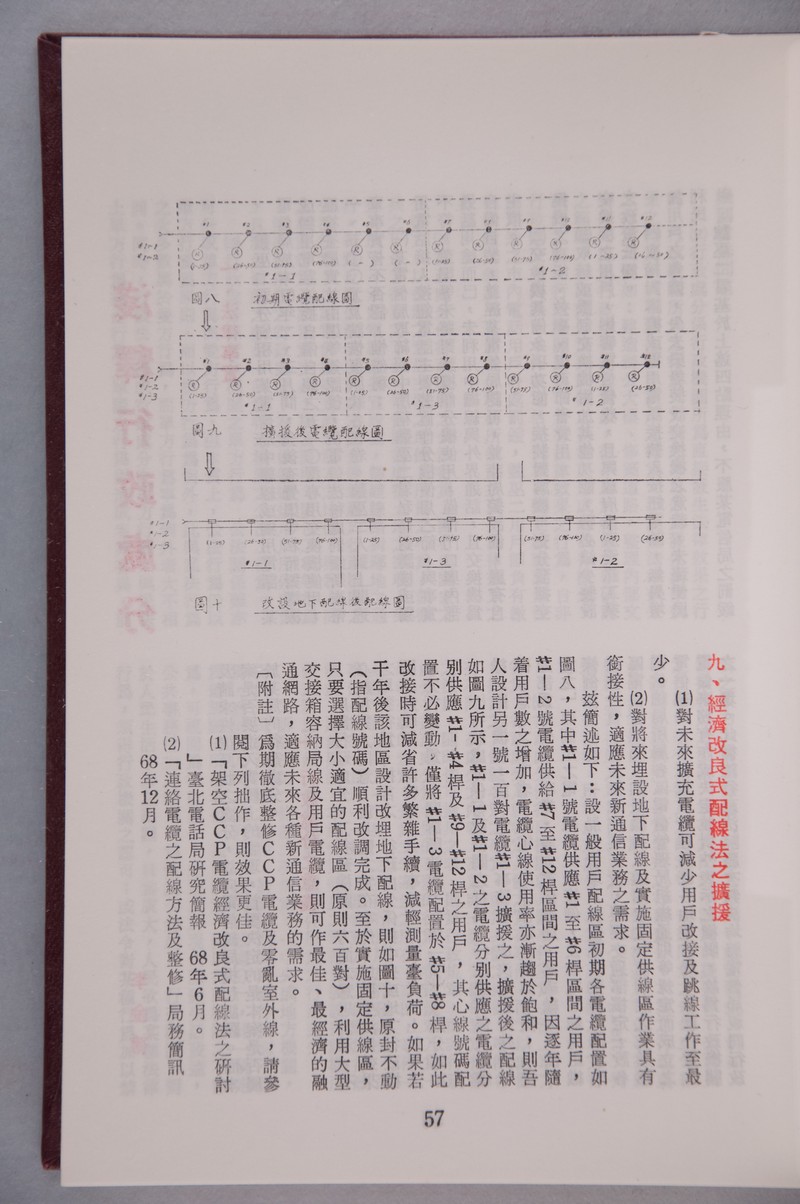 #1-1
#1-2
#1 #2 #3 #4 #5 #6 #7 #8 #9 #10 #11 #12
#1-1 #1-2
圖八 初期電纜配線圖
#1-1
#1-2
#1-3
#1 #2 #3 #4 #5 #6 #7 #8 #9 #10 #11 #12
(1-25) (26-50) (51-75) (76-100) (1-25) (26-50) (51-75) (76-100) (51-75) (76-100) (1-25) (26-50)
#1-1 #1-3 #1-2
圖九 擴援後電纜配線圖
#1-1
#1-2
#1-3
(1-25) (26-50) (51-75) (76-100) (1-25) (26-50) (51-75) (76-100) (51-75) (76-100) (1-25) (26-50)
#1-1 #1-3 #1-2
圖十 改設地下配線後配線圖
九、經濟改良式配線法之擴援
(1)對未來擴充電纜可減少用戶改接及跳線工作至最
少。
(2)對將來埋設地下配線及實施固定供線區作業具有
銜接性，適應未來新通信業務之需求。
茲簡述如下：設一般用戶配線區初期各電纜配置如
圖八，其中#1—1號電纜供應#1至#6桿區間之用戶，
#1—2號電纜供給#7至#12桿區間之用戶，因逐年隨
着用戶數之增加，電纜心線使用率亦漸趨於飽和，則吾
人設計另一號一百對電纜#1—3擴援之，擴援後之配線
如圖九所示，#1—1及#1—2之電纜分別供應之電纜分
別供應#1-#4桿及#9—#12桿之用戶，其心線號碼配
置不必變動，僅將#1—3電纜配置於#5—#8桿，如此
改接時可減省許多繁雜手續，減輕測量臺負荷。如果若
干年後該地區設計改埋地下配線，則如圖十，原封不動
（指配線號碼）順利改調完成。至於實施固定供線區，
只要選擇大小適宜的配線區（原則六百對），利用大型
交接箱容納局線及用戶電纜，則可作最佳、最經濟的融
通網路，適應未來各種新通信業務的需求。
〔附註〕為期徹底整修CCP電纜及零亂室外線，請參
閱下列拙作，則效果更佳。
(1)「架空CCP電纜經濟改良式配線法之研討
」臺北電話局研究簡報 68年6月。
(2)「連絡電纜之配線方法及整修」局務簡訊
68年12月。
57